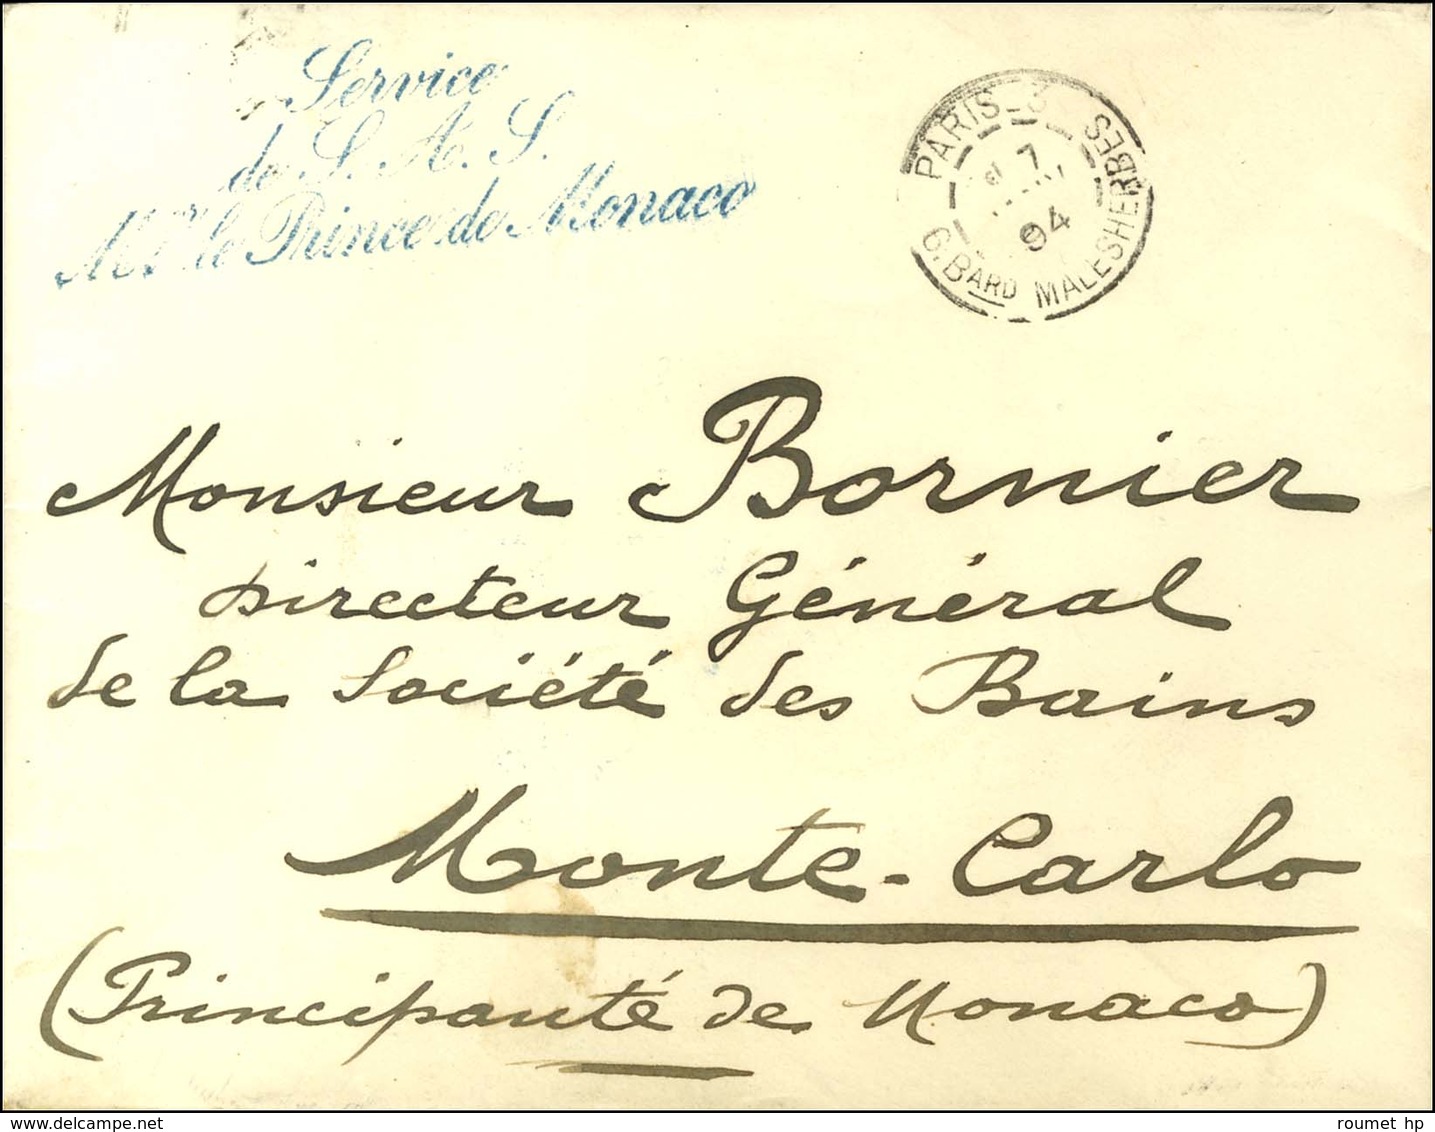 Service
de S. A. S.
Mgr le Prince de Monaco
PARIS_3
7
94
6. BARD MALESHERBES
Monsieur Bornier
Directeur Général
de la Société des Bains
Monte-Carlo
(Principauté de Monaco)
www.delcampe.net
roumet hp